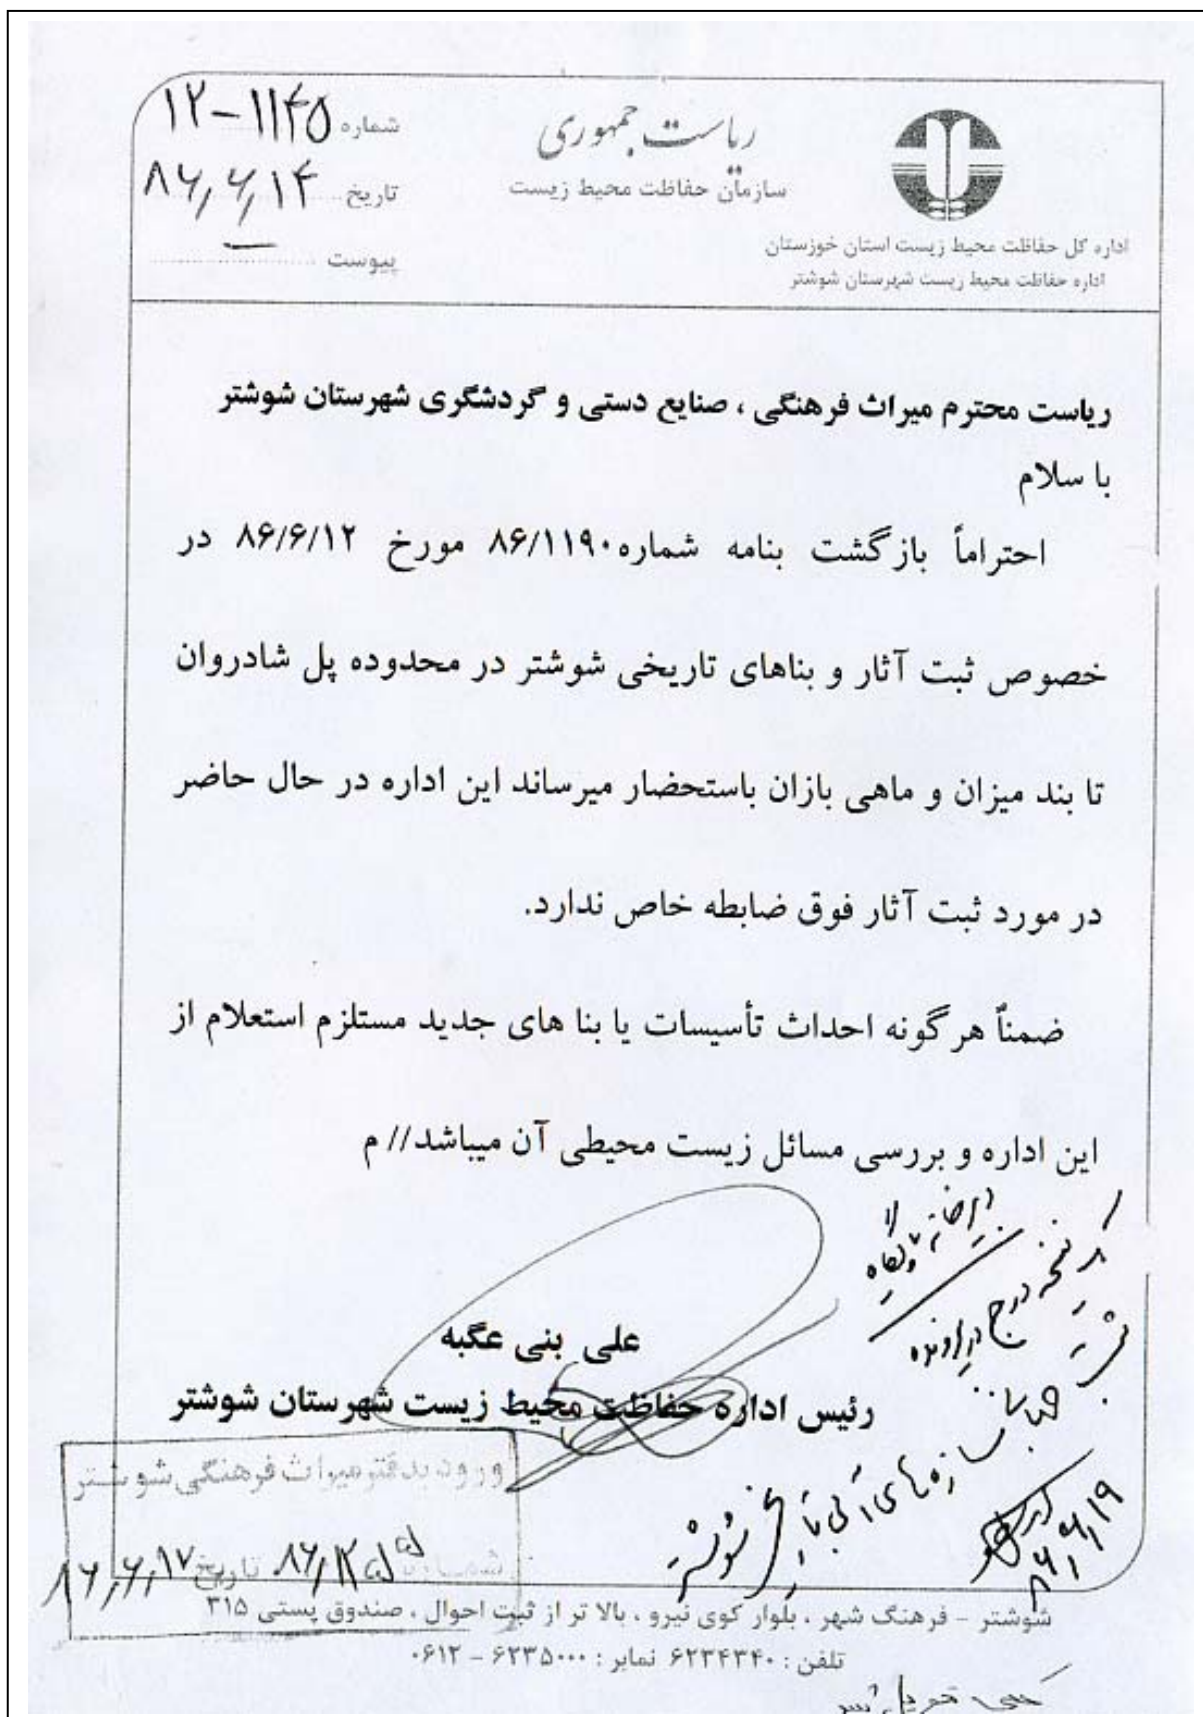 ریاست جمهوری
سازمان حفاظت محیط زیست
اداره کل حفاظت محیط زیست استان خوزستان
اداره حفاظت محیط زیست شهرستان شوشتر
شماره ۱۲-۱۱۴۵
تاریخ ۸۶,۶,۱۴
پیوست —
ریاست محترم میراث فرهنگی ، صنایع دستی و گردشگری شهرستان شوشتر
با سلام
احتراماً بازگشت بنامه شماره ۸۶/۱۱۹۰ مورخ ۸۶/۶/۱۲ در
خصوص ثبت آثار و بناهای تاریخی شوشتر در محدوده پل شادروان
تا بند میزان و ماهی بازان باستحضار میرساند این اداره در حال حاضر
در مورد ثبت آثار فوق ضابطه خاص ندارد.
ضمناً هر گونه احداث تأسیسات یا بنا های جدید مستلزم استعلام از
این اداره و بررسی مسائل زیست محیطی آن میباشد// م
علی بنی عگبه
رئیس اداره حفاظت محیط زیست شهرستان شوشتر
نسخه درج در پرونده
سازه های آبی تاریخی شوشتر
۸۶,۶,۱۹
ورود بدفتر میراث فرهنگی شوشتر
شماره تاریخ ۸۶,۶,۱۷
شوشتر - فرهنگ شهر ، بلوار کوی نیرو ، بالا تر از ثبت احوال ، صندوق پستی ۳۱۵
تلفن : ۶۲۳۴۳۴۰ نمابر : ۶۲۳۵۰۰۰ - ۰۶۱۲